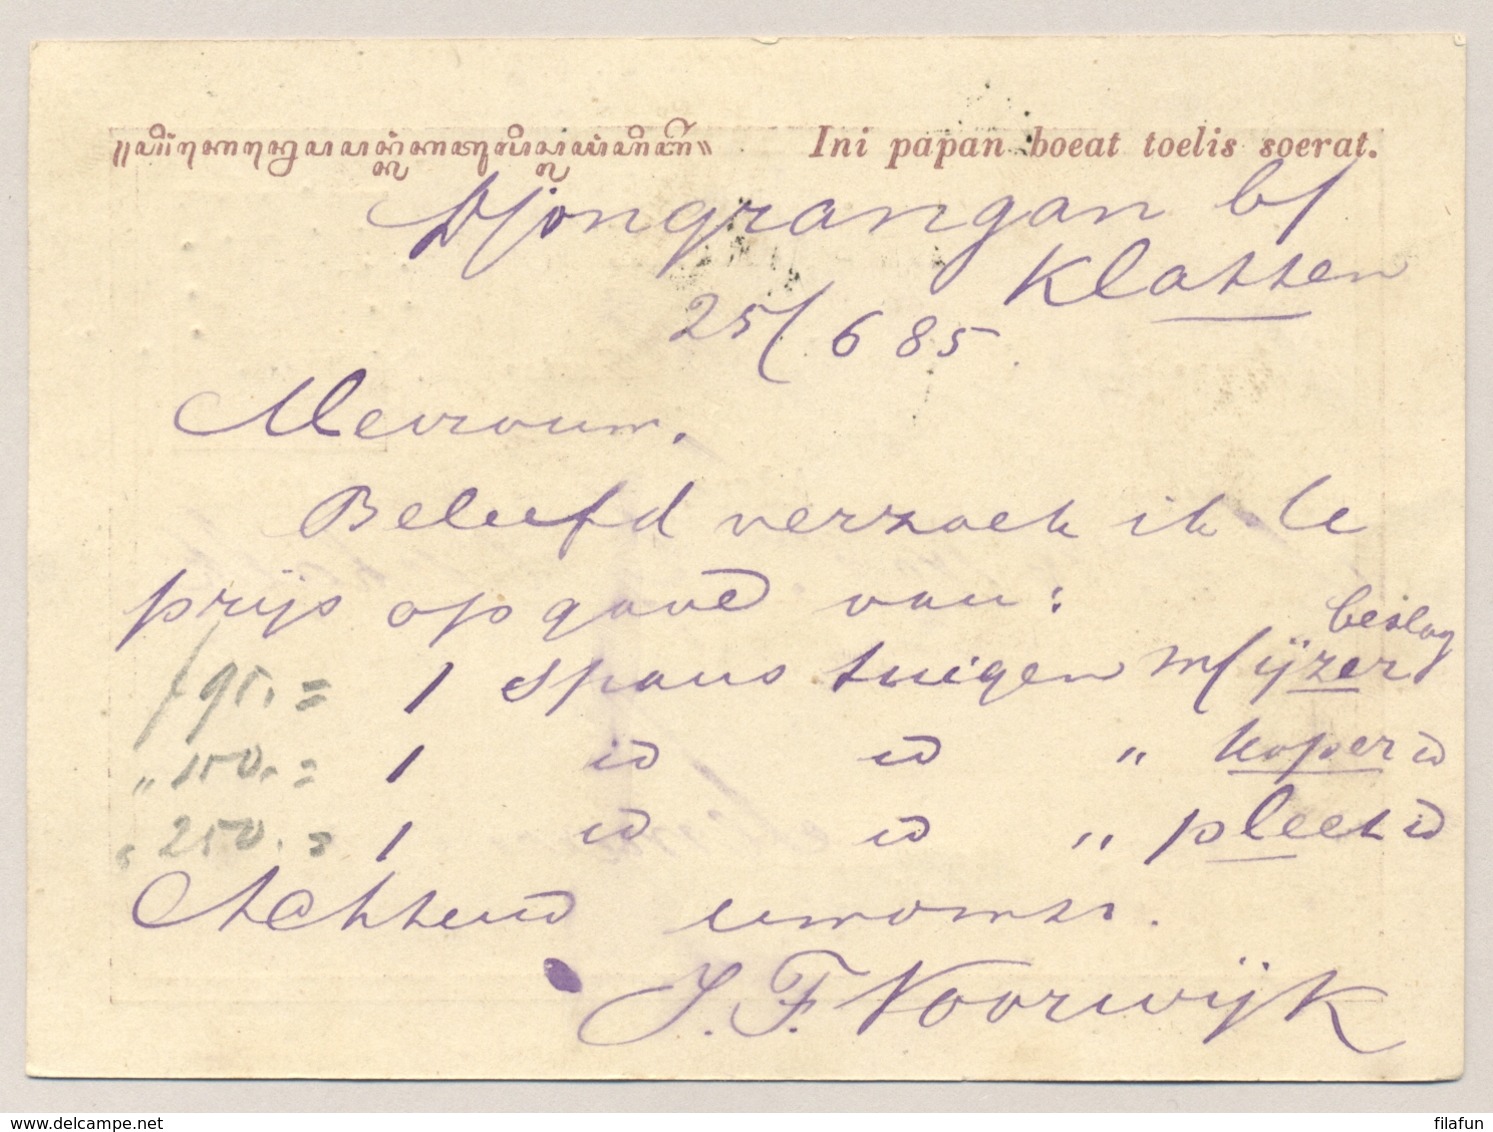 Ini papan boeat toelis soerat.
Djongrangan b/
Klatten
25/6 85.
Mevrouw.
Beleefd verzoek ik U
prijs opgave van:
beslag
f 95.= 1 spans tuigen m/ ijzer
" 150.= 1 id id " koper id
" 250.= 1 id id " pleet id
Achtend
J. F. Noorwijk
filafun